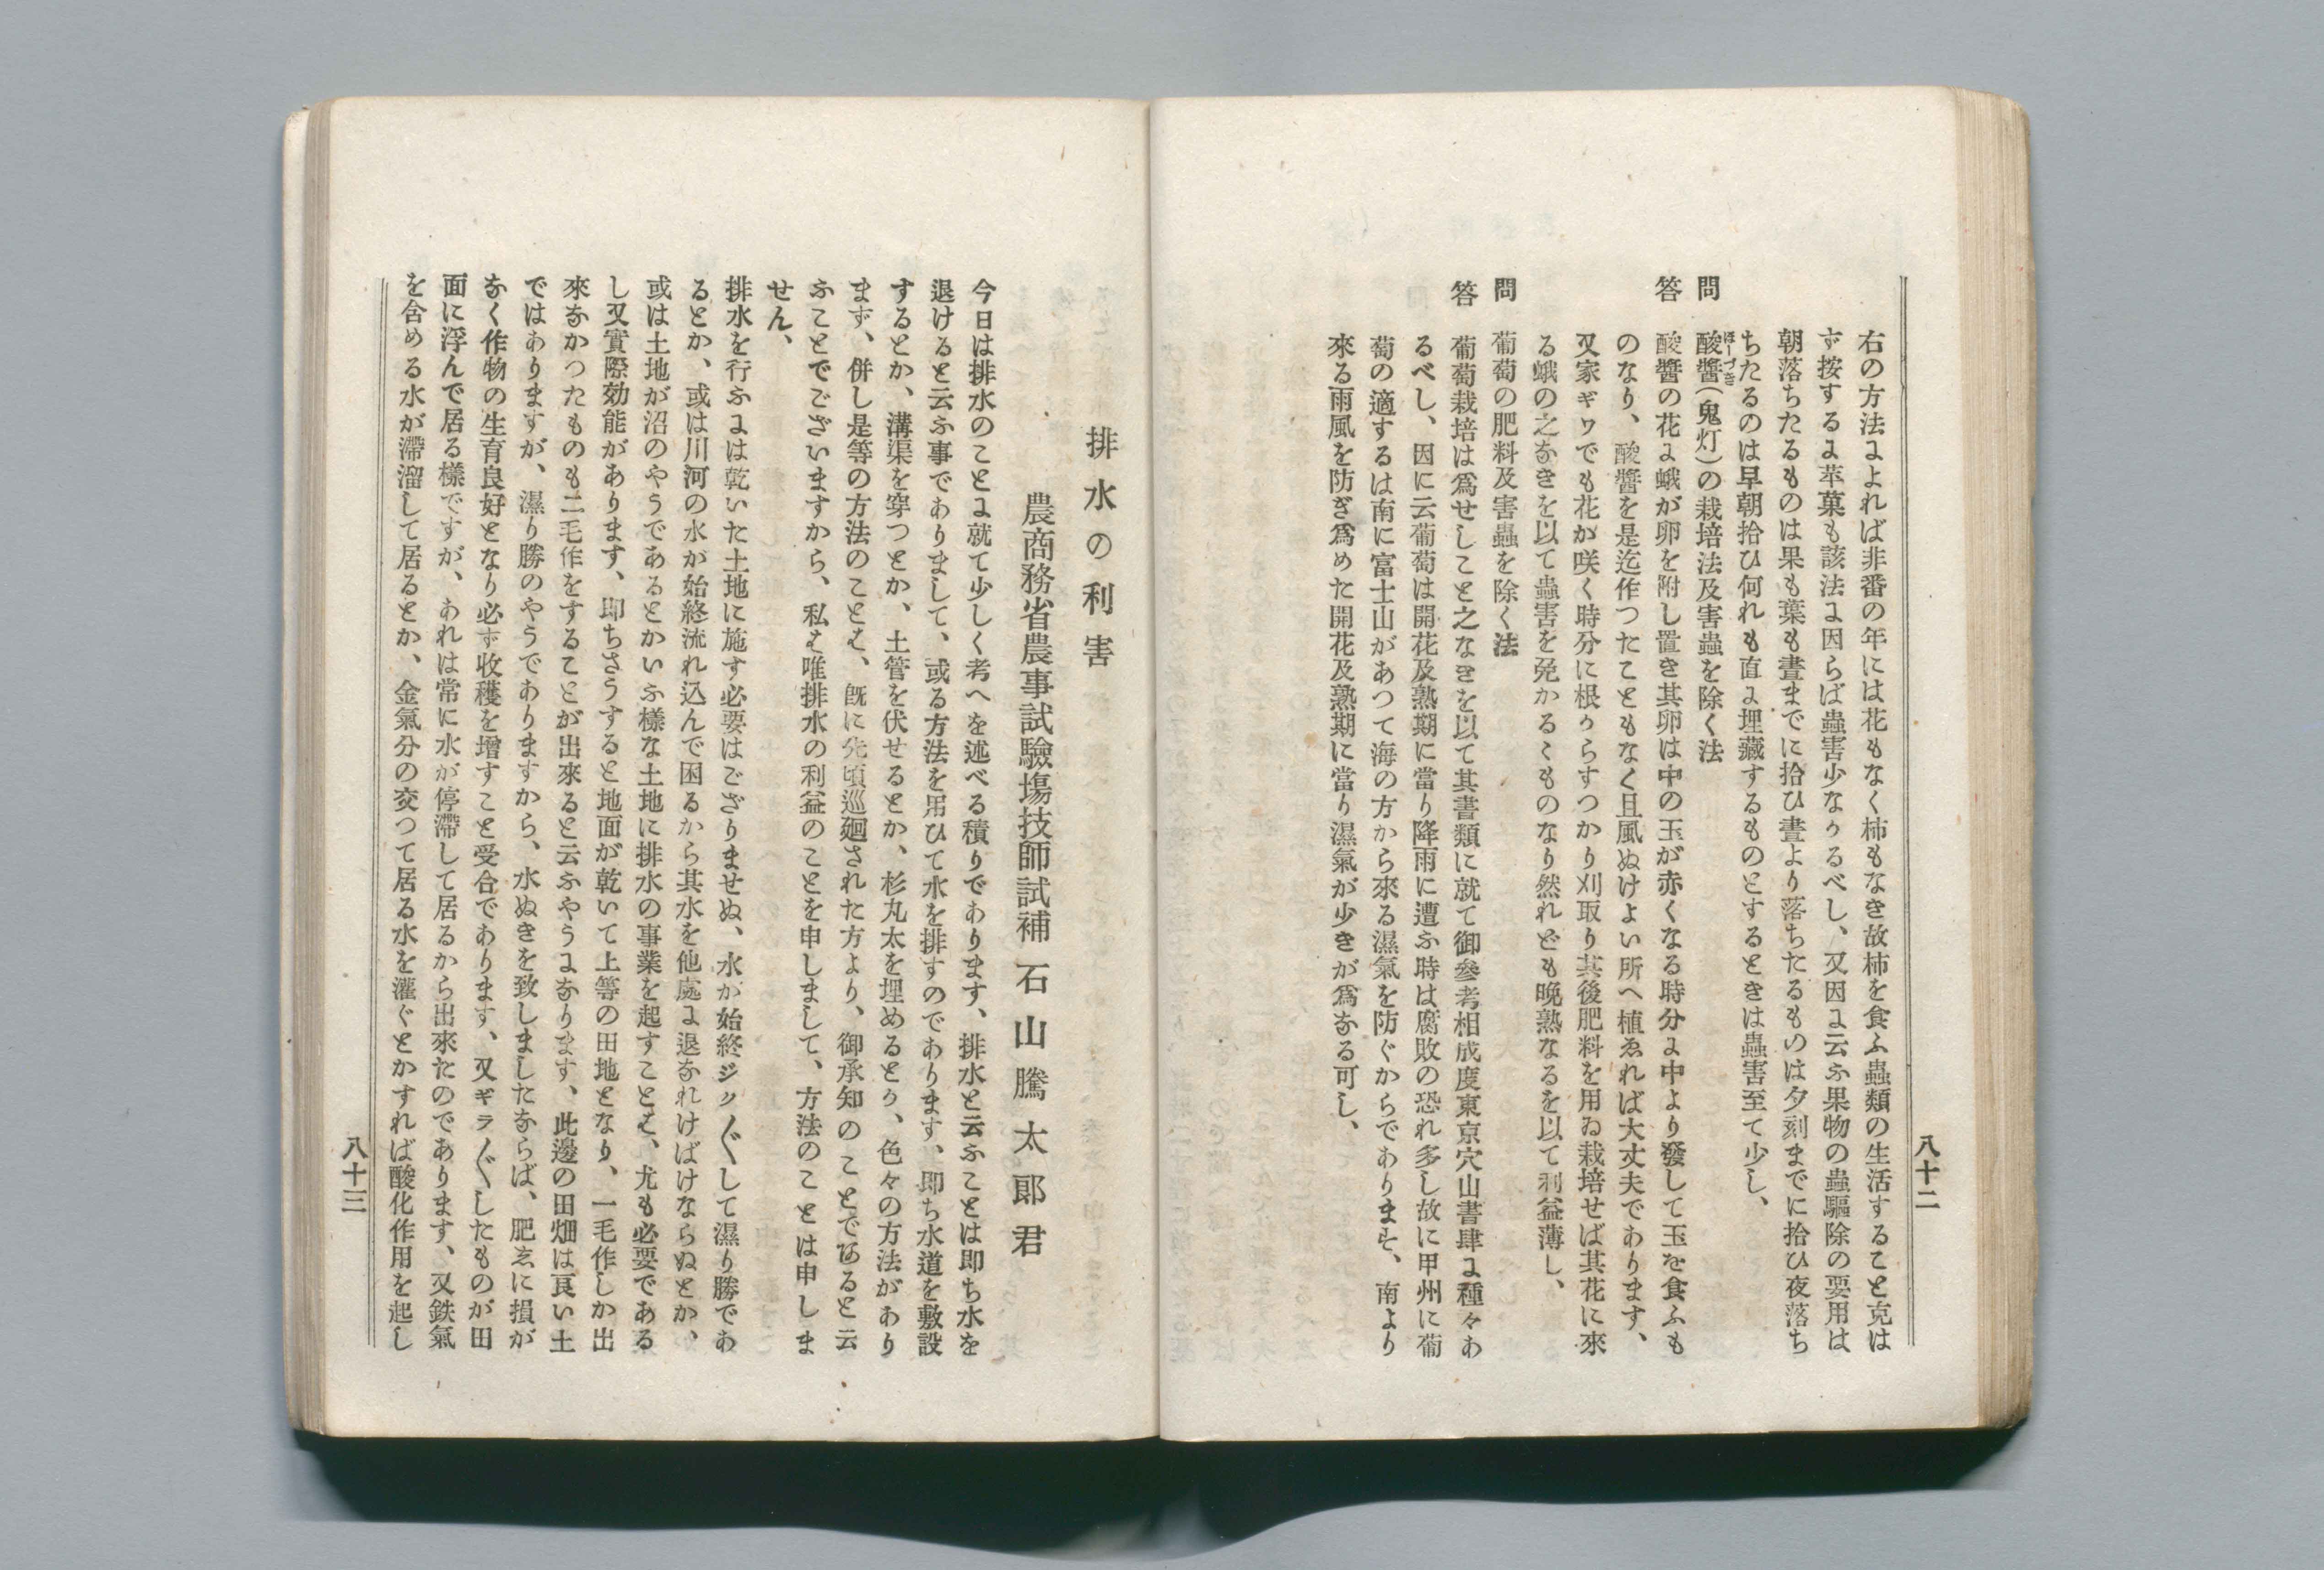 八十二
右の方法によれば非番の年には花もなく柿もなき故柿を食ふ蟲類の生活すること克は
ず按するに苹菓も該法に因らば蟲害少なかるべし、又因に云ふ果物の蟲驅除の要用は
朝落ちたるものは果も葉も晝までに拾ひ晝より落ちたるものは夕刻までに拾ひ夜落ち
ちたるのは早朝拾ひ何れも直に埋藏するものとするときは蟲害至て少し、
問 酸醬(鬼灯)の栽培法及害蟲を除く法
ほーづき
答 酸醬の花に蛾が卵を附し置き其卵は中の玉が赤くなる時分に中より發して玉を食ふも
のなり、酸醬を是迄作つたこともなく且風ぬけよい所へ植ゑれば大丈夫であります、
又家ギワでも花か咲く時分に根からすつかり刈取り其後肥料を用ゐ栽培せば其花に來
る蛾の之なきを以て蟲害を免かるゝものなり然れども晩熟なるを以て利益薄し、
問 葡萄の肥料及害蟲を除く法
答 葡萄栽培は爲せしこと之なきを以て其書類に就て御參考相成度東京穴山書肆に種々あ
るべし、因に云葡萄は開花及熟期に當り降雨に遭ふ時は腐敗の恐れ多し故に甲州に葡
萄の適するは南に富士山があつて海の方から來る濕氣を防ぐからであります、南より
來る雨風を防ぎ爲めた開花及熟期に當り濕氣が少きが爲なる可し、
排水の利害
農商務省農事試驗塲技師試補 石山騰太郎君
今日は排水のことに就て少しく考へを述べる積りであります、排水と云ふことは即ち水を
退けると云ふ事でありまして、或る方法を用ひて水を排すのであります、即ち水道を敷設
するとか、溝渠を穿つとか、土管を伏せるとか、杉丸太を埋めるとか、色々の方法があり
ます、併し是等の方法のことは、既に先頃巡廻された方より、御承知のことであると云
ふことでございますから、私は唯排水の利益のことを申しまして、方法のことは申しま
せん、
排水を行ふには乾いた土地に施す必要はござりませぬ、水が始終ジク〱して濕り勝であ
るとか、或は川河の水が始終流れ込んで困るから其水を他處に退なれけばけならぬとか、
或は土地が沼のやうであるとかいふ樣な土地に排水の事業を起すことは、尤も必要である
し又實際効能があります、即ちさうすると地面が乾いて上等の田地となり、一毛作しか出
來なかつたものも二毛作をすることが出來ると云ふやうになります、此邊の田畑は良い土
ではありますが、濕り勝のやうでありますから、水ぬきを致しましたならば、肥ゑに損が
なく作物の生育良好となり必ず收穫を增すこと受合であります、又ギラ〲したものが田
面に浮んで居る樣ですが、あれは常に水が停滯して居るから出來たのであります、又鉄氣
を含める水が滯溜して居るとか、金氣分の交つて居る水を灌ぐとかすれば酸化作用を起し
八十三